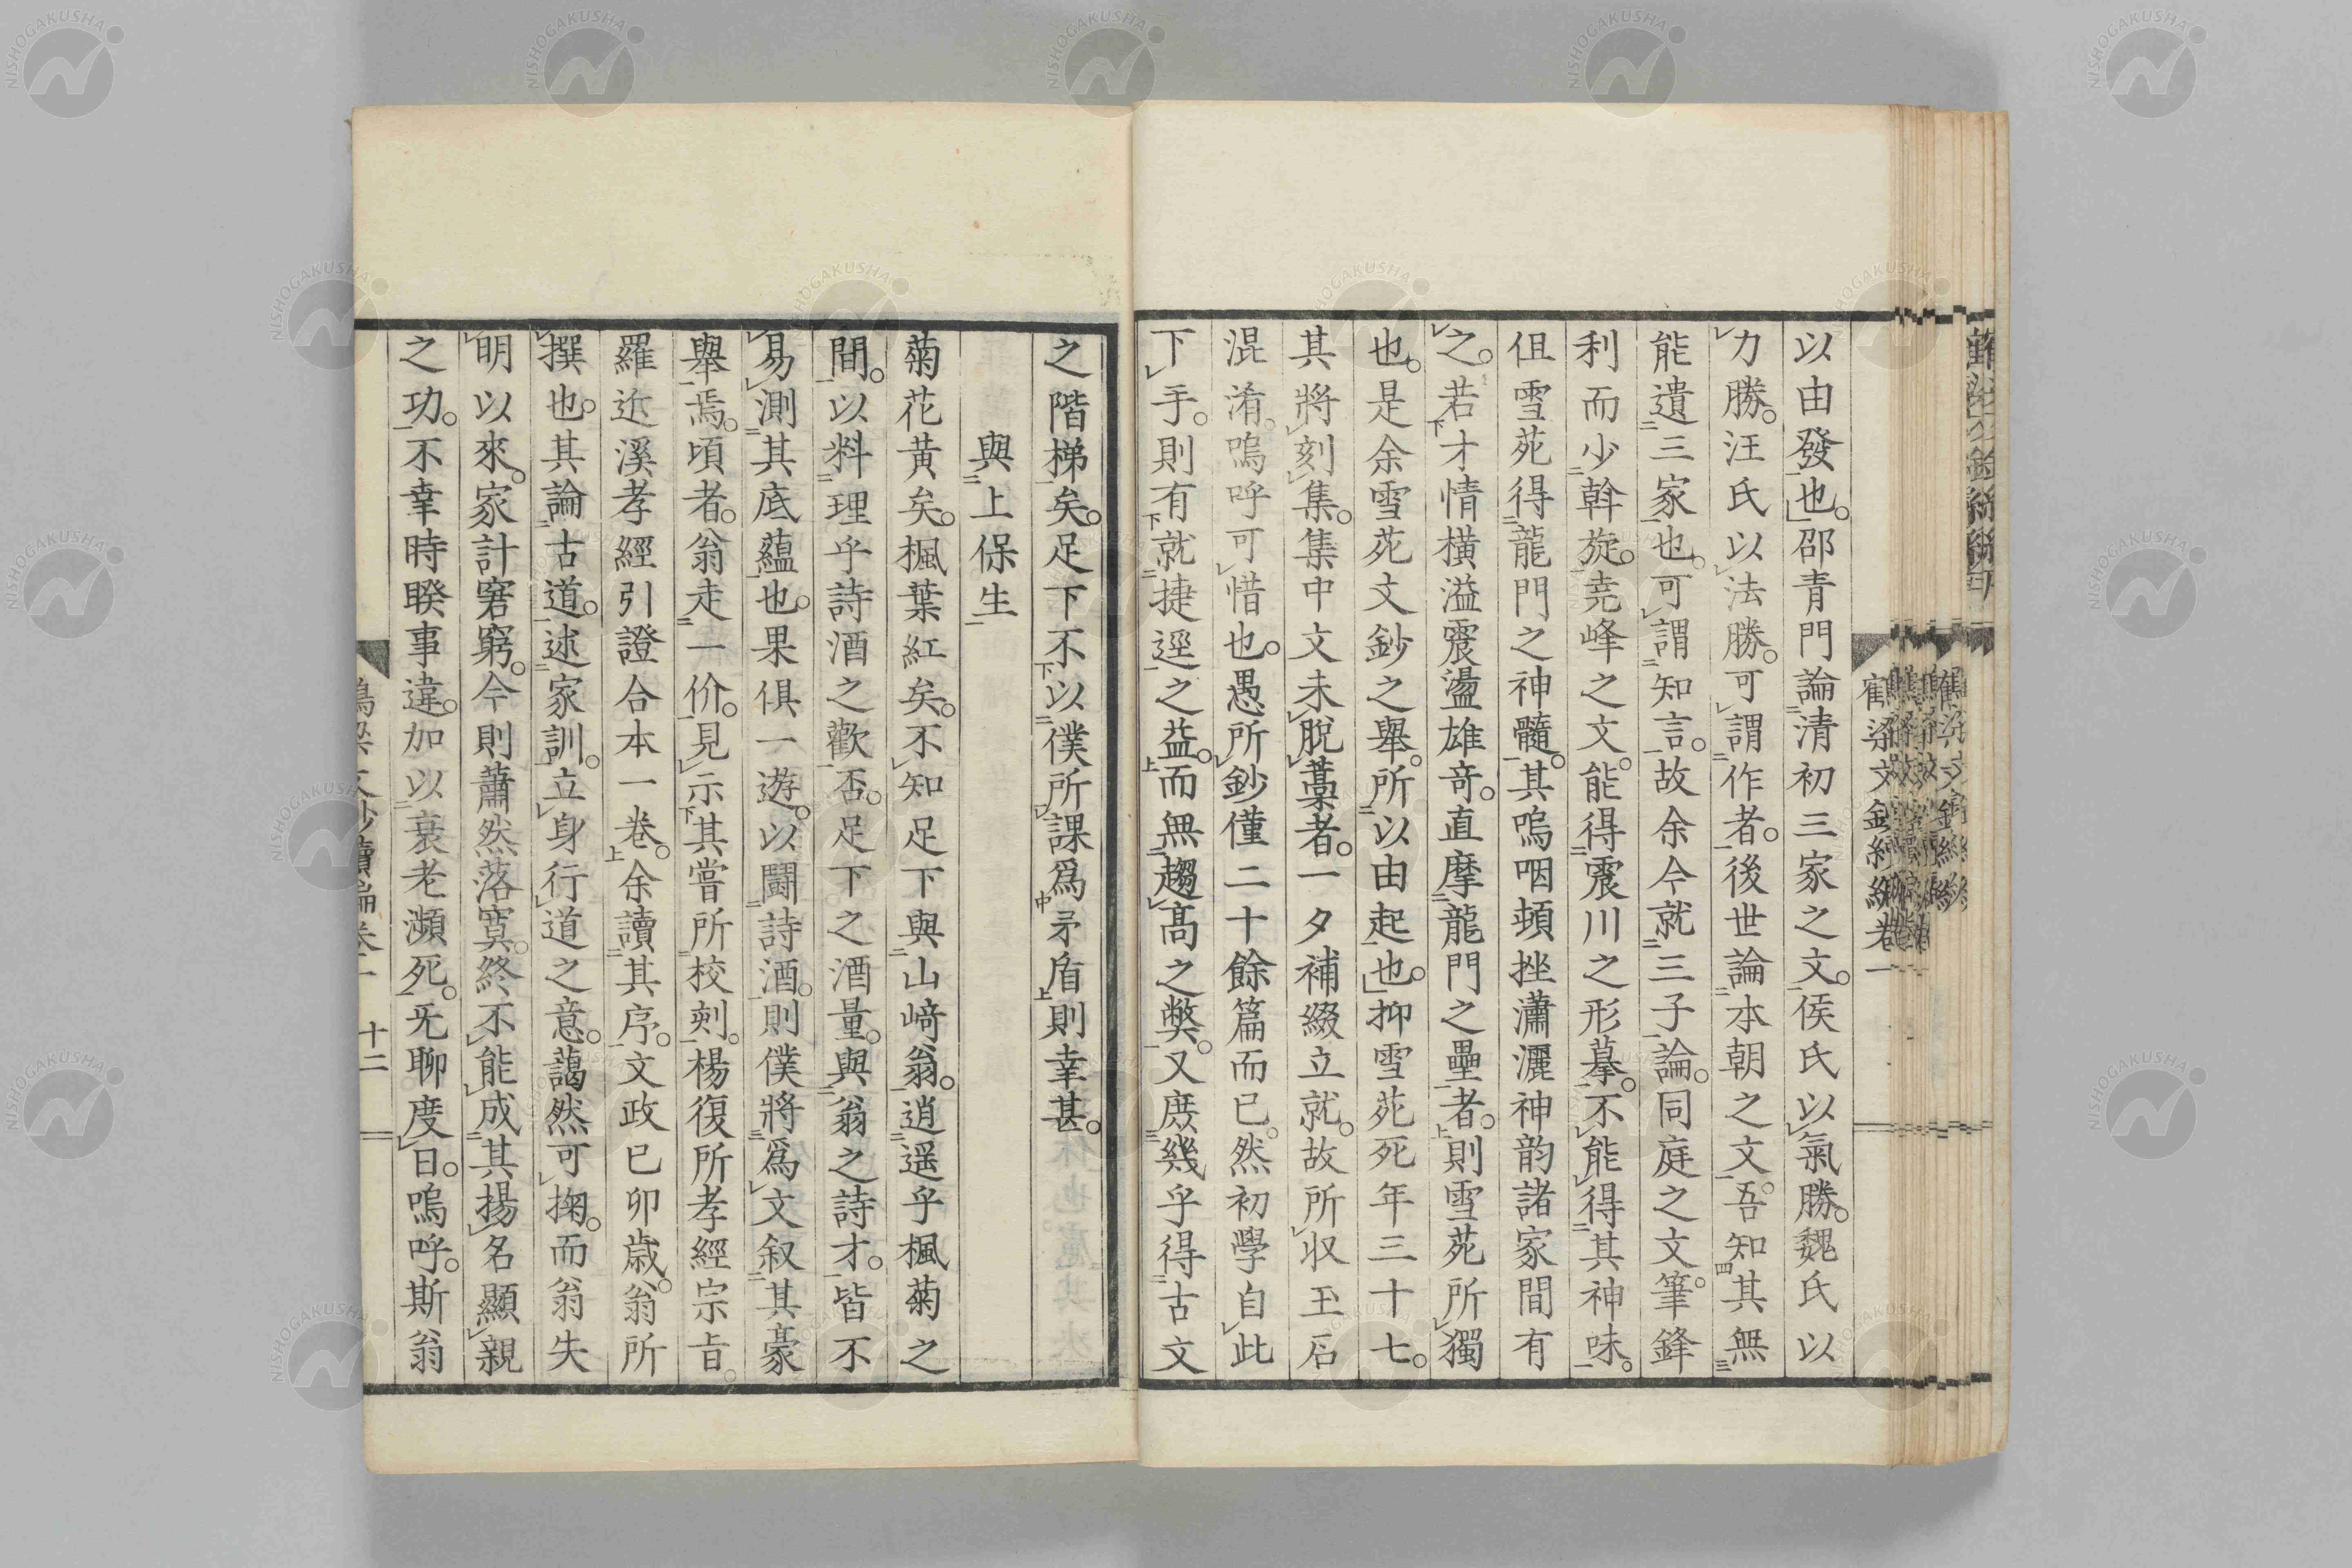 以由發也。邵青門論清初三家之文。侯氏以氣勝。魏氏以
力勝。汪氏以法勝。可謂作者。後世論本朝之文。吾知其無
能遺三家也。可謂知言。故余今就三子論。同庭之文。筆鋒
利而少斡旋。堯峰之文。能得震川之形摹。不能得其神味。
伹雪苑得龍門之神髓。其嗚咽頓挫瀟灑神韵諸家間有
之。若才情橫溢震盪雄奇。直摩龍門之壘者。則雪苑所獨
也。是余雪苑文鈔之舉。所以由起也。抑雪苑死年三十七。
其將刻集。集中文未脫藁者。一夕補綴立就。故所収玉石
混淆。嗚呼可惜也。愚所鈔僅二十餘篇而已。然初學自此
下手。則有就捷逕之益。而無趨高之獘。又庶幾乎得古文
之階梯矣。足下不以僕所課爲矛盾則幸甚。
與上保生
菊花黃矣。楓葉紅矣。不知足下與山﨑翁。逍遥乎楓菊之
間。以料理乎詩酒之歡否。足下之酒量。與翁之詩才。皆不
易測其底蘊也。果俱一遊。以鬪詩酒。則僕將爲文叙其豪
舉焉。頃者。翁走一价。見示其嘗所校刻。楊復所孝經宗旨。
羅近溪孝經引證合本一卷。余讀其序。文政已卯歳。翁所
撰也。其論古道。述家訓。立身行道之意。藹然可掬。而翁失
明以來。家計窘窮。今則蕭然落寞。終不能成其揚名顯親
之功。不幸時睽事違。加以衰老瀕死。旡聊度日。嗚呼。斯翁
十二
NISHOGAKUSHA